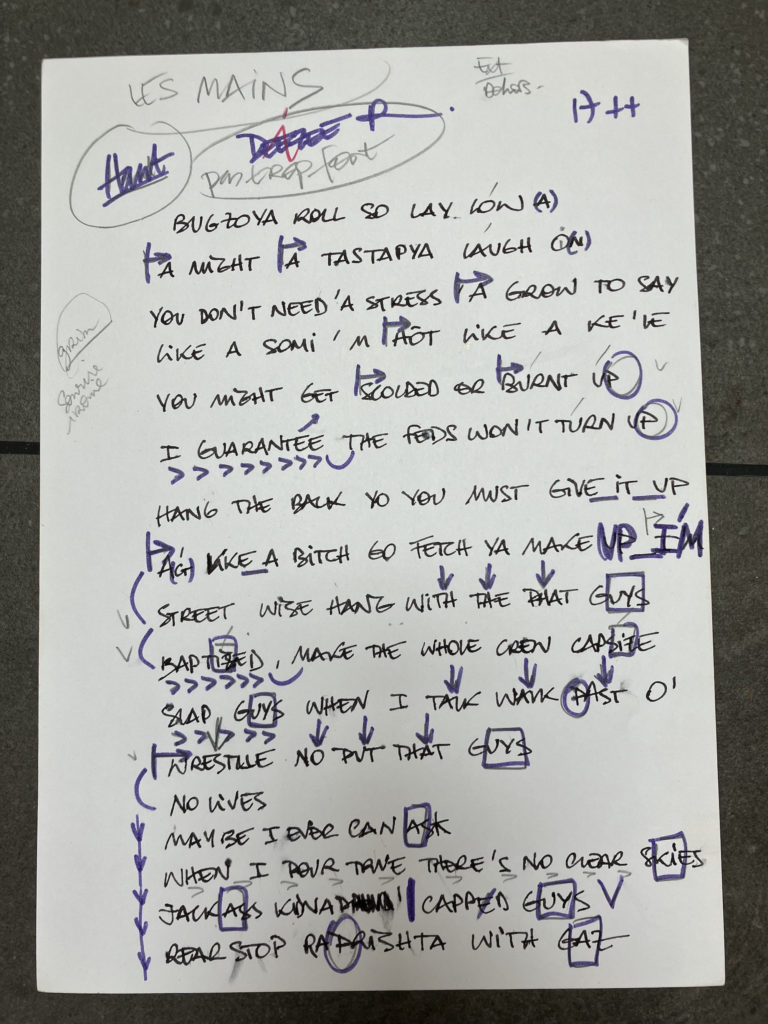 LES MAINS
Ext
Dehors.
17 ++
Haut
pas trop fort
BUGZOYA ROLL SO LAY LOW (A)
A MIGHT A TASTAPYA LAUGH O(N)
YOU DON'T NEED 'A STRESS 'A GROW TO SAY
LIKE A SOMI 'M HOT LIKE A KE'LE
YOU MIGHT GET SCOLDED OR BURNT UP
I GUARANTEE THE FEDS WON'T TURN UP
grim
sourire
HANG THE BACK YO YOU MUST GIVE_IT_UP
A(G) LIKE_A BITCH GO FETCH YA MAKE UP_I'M
STREET WISE HANG WITH THE THAT GUYS
BAPTIZED, MAKE THE WHOLE CREW CAPSIZE
SLAP GUYS WHEN I TALK WALK PAST O'
WRESTLLE NO PUT THAT GUYS
NO LIVES
MAYBE I EVER CAN ASK
WHEN I POUR THERE'S NO CLEAR SKIES
JACKASS CAPPED GUYS
REAR STOP RAPRISHTA WITH GAZ